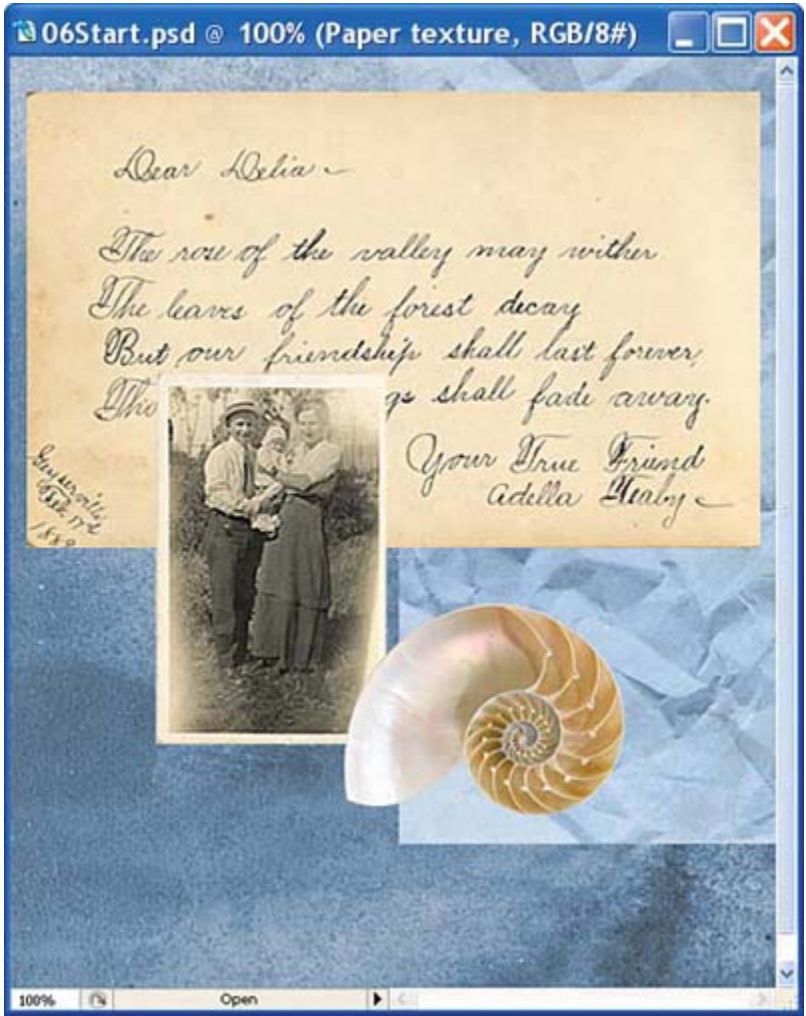 06Start.psd @ 100% (Paper texture, RGB/8#)
Dear Delia
The rose of the valley may wither
The leaves of the forest decay
But our friendship shall last forever,
gs shall fade away.
Your True Friend
Adella
Geyserville
Feb 17th
100% Open